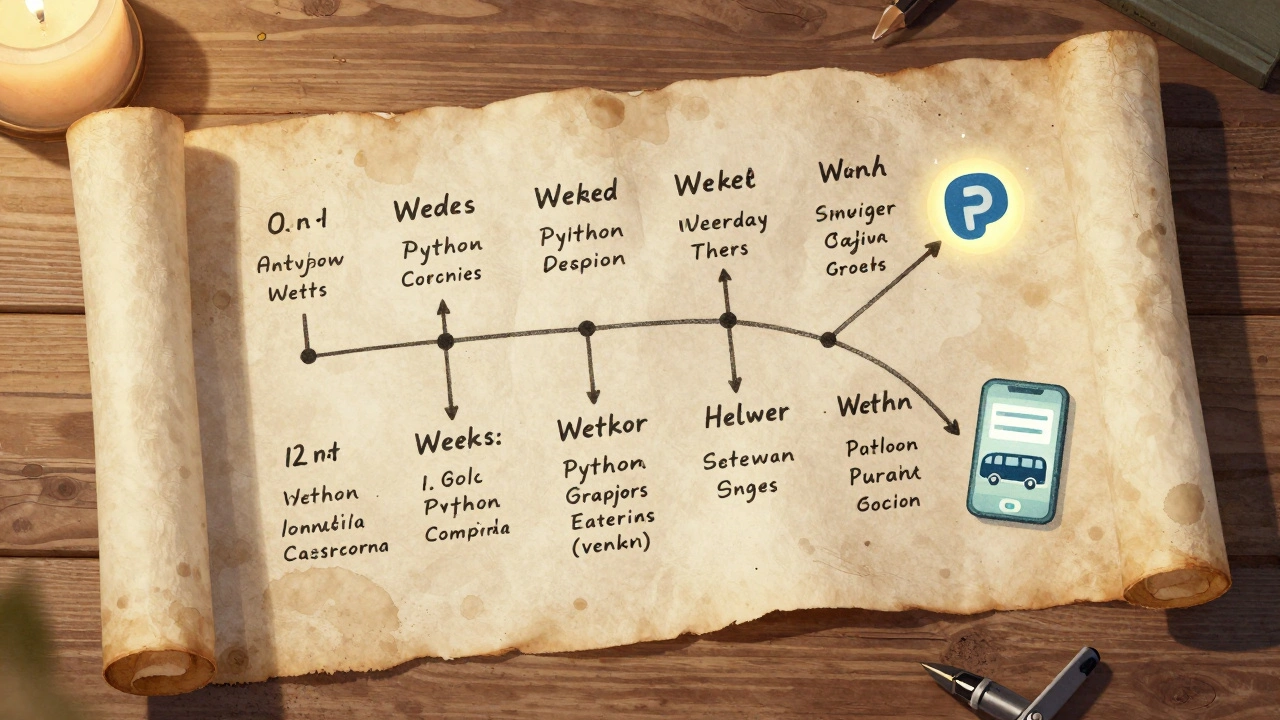 O.nt
Antvjpow
Wetts
Wedes
Python
Corcnies
Weked
Pyithon
Despion
Weket
Weerday
Thers
Wanh
Smuiger
Cafiva
Groets
P
12 nt
Wethon
Ionnutila
Cassrcorna
Weeks:
1. Golc
Python
Compirda
Wetkor
Python
Grapjors
Eaterins
(venkn)
Helwer
Setewan
Snges
Wethn
Patloon
Puraht
Gocion